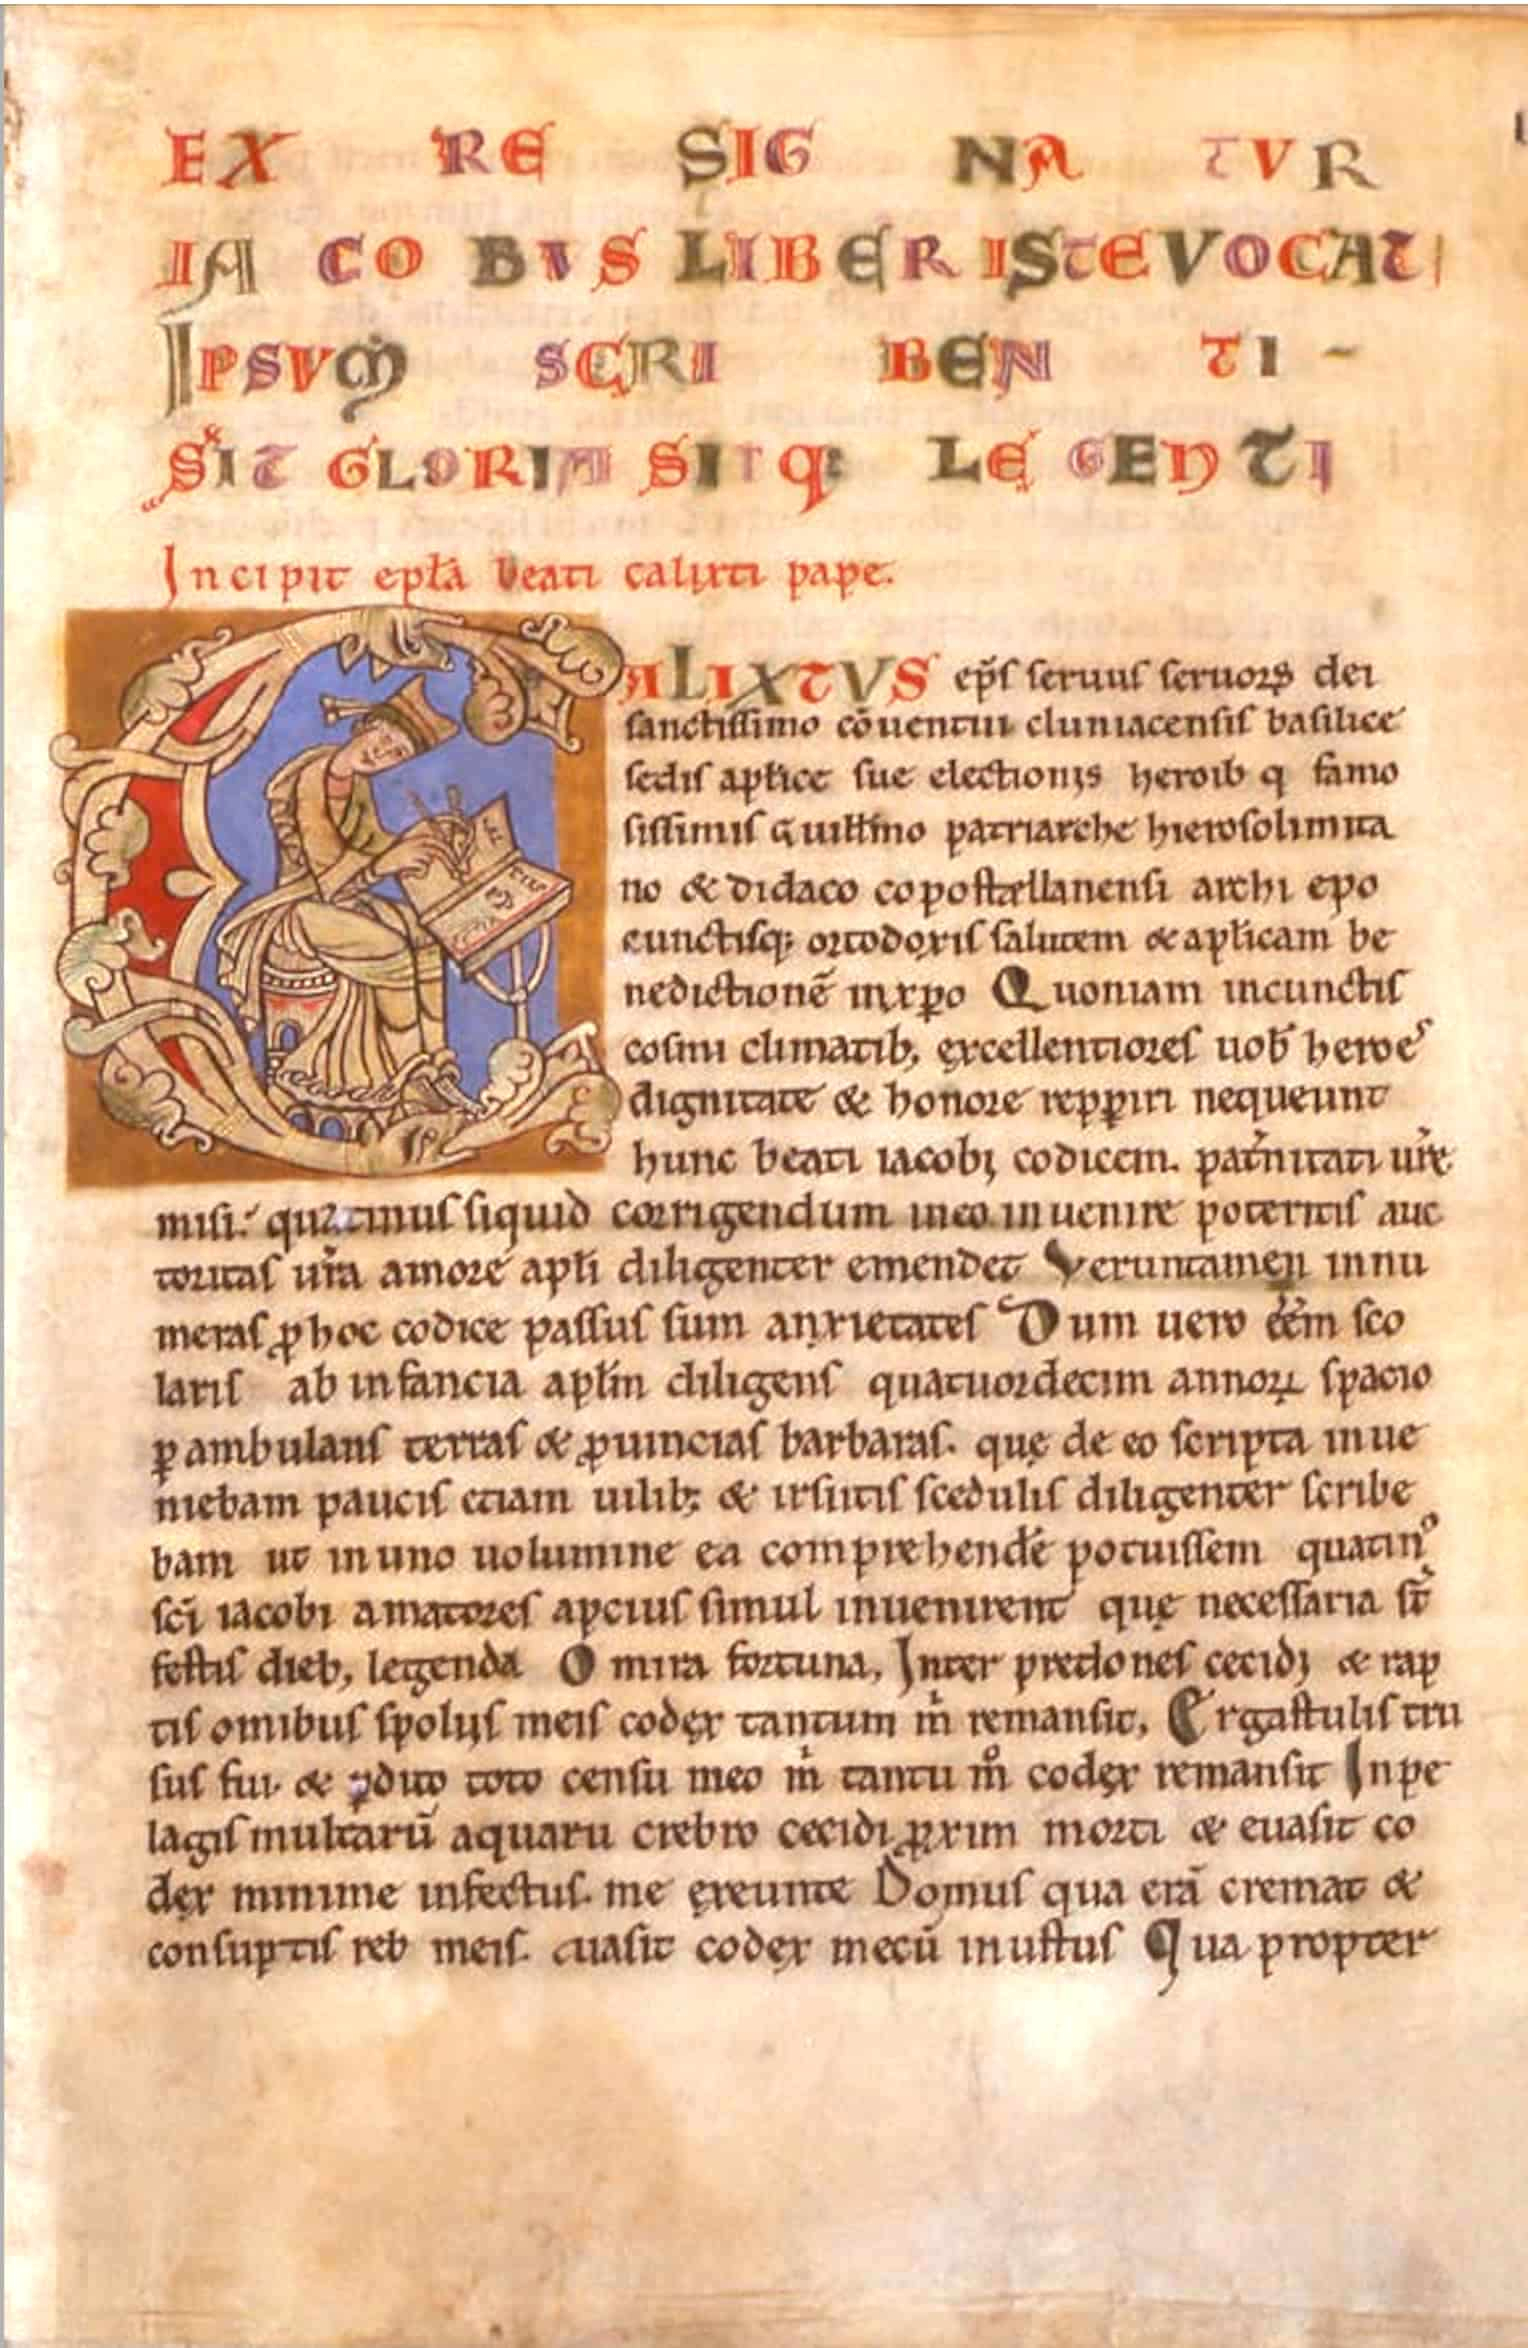 EX RE SIG NA TVR
IA CO BVS LIBER ISTE VOCAT
IPSVM SCRI BEN TI -
SIT GLORIA SITQ: LE GEN TI
Incipit epła beati calixti pape.
CALIXTVS ep̄s seruus seruoꝝ dei
sanctissimo cōuentui cluniacensis basilice
sedis aplice sue electionis heroib q famo
sissimis Guillmo patriarche hierosolimita
no & didaco copostellanensi archi epo
cunctisq; ortodoxis salutem & aplicam be
nedictionē inxpo Quoniam incunctis
cosmi climatib, excellentiores uob heroes
dignitate & honore repꝑiri nequeunt
hunc beati iacobi codicem. pat̓nitati ur̄e
misi. quatinus siquid corrigendum ineo inuenire poteritis auc
toritas ur̄a amore apli diligenter emendet Veruntamen innu
meras ꝓhoc codice passus sum anxietates Dum uero eēm sco
laris ab infancia aplm diligens quatuordecim annoꝝ spacio
ꝑambulans terras & ꝓuincias barbaras. quę de eo scripta inue
niebam paucis etiam uilib; & irsutis scedulis diligenter scribe
bam ut inuno uolumine ea comprehendē potuissem quatinꝰ
sc̄i iacobi amatores apcius simul inuenirent quę necessaria st̄
festis dieb, legenda O mira fortuna, Inter predones cecidi & rap
tis omibus spoliis meis codex tantum m̓ remansit, Ergastulis tru
sus fui. & ꝑdito toto censu meo m̓ tantu mᵒ codex remansit Inpe
lagis multarū aquaru crebro cecidi ꝓxim morti & euasit co
dex minime infectus. me exeunte Domus qua erā cremat &
consuptis reb meis. euasit codex mecū inustus Qua propter